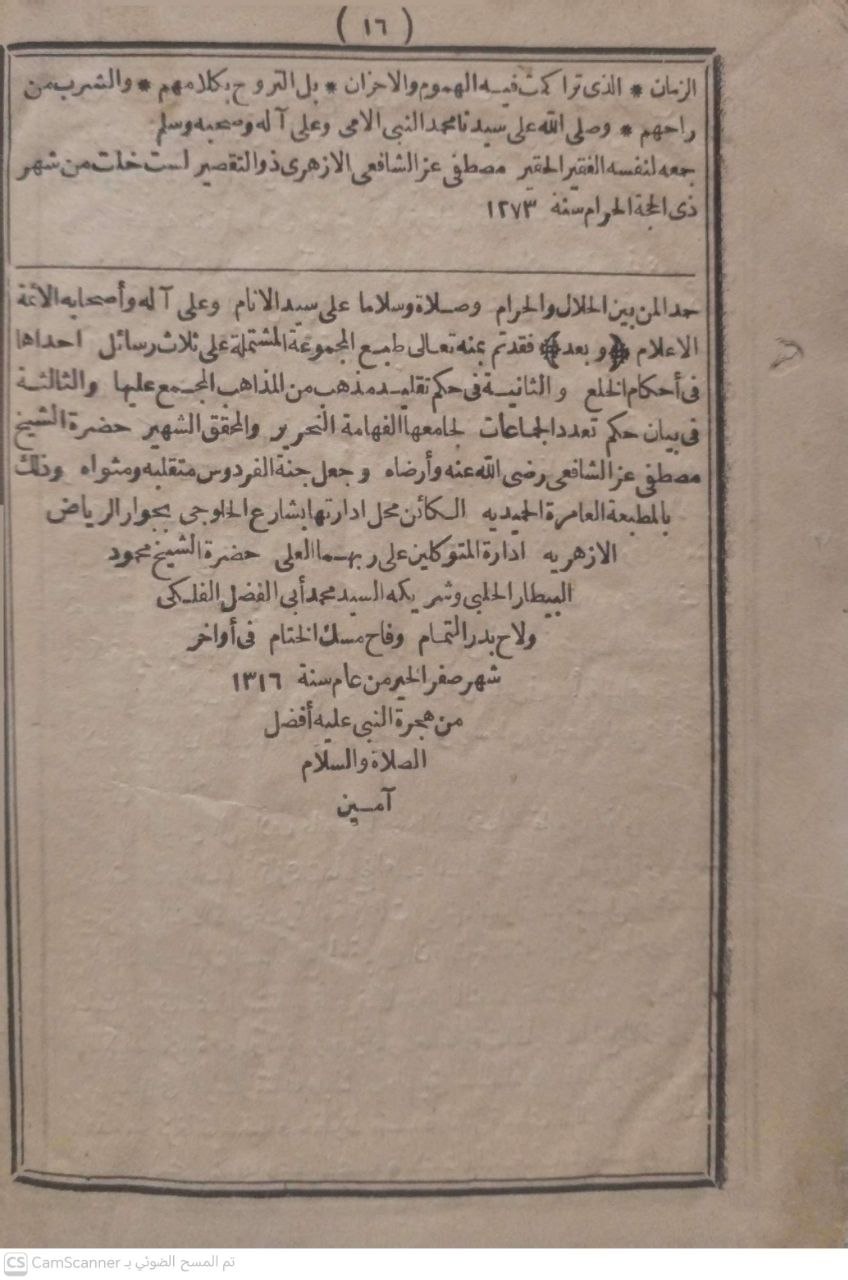 ( ١٦ )
الزمان * الذى تراكمت فيه الهموم والاحزان * بل التروح بكلامهم * والشرب من
راحهم * وصلى الله على سيدنا محمد النبى الامى وعلى آله وصحبه وسلم
جمعه لنفسه الفقير الحقير مصطفى عز الشافعى الازهرى ذو التقصير لست خلت من شهر
ذى الحجة الحرام سنة ١٢٧٣
حمد المن بين الحلال والحرام وصلاة وسلاما على سيد الانام وعلى آله وأصحابه الائمة
الاعلام ﴿وبعد﴾ فقد تم بمنه تعالى طبع المجموعة المشتملة على ثلاث رسائل احداها
فى أحكام الخلع والثانية فى حكم تقليد مذهب من المذاهب المجمع عليها والثالثة
فى بيان حكم تعدد الجماعات لجامعها الفهامة النحرير والمحقق الشهير حضرة الشيخ
مصطفى عز الشافعى رضى الله عنه وأرضاه وجعل جنة الفردوس متقلبه ومثواه وذلك
بالمطبعة العامرة الحميديه الكائن محل ادارتها بشارع الحلوجى بجوار الرياض
الازهريه ادارة المتوكلين على ربهما العلى حضرة الشيخ محمود
البيطار الحلبى وشريكه السيد محمد أبى الفضل الفلكى
ولاح بدر التمام وفاح مسك الختام فى أواخر
شهر صفر الخير من عام سنة ١٣١٦
من هجرة النبى عليه أفضل
الصلاة والسلام
آمين
CS CamScanner تم المسح الضوئي بـ